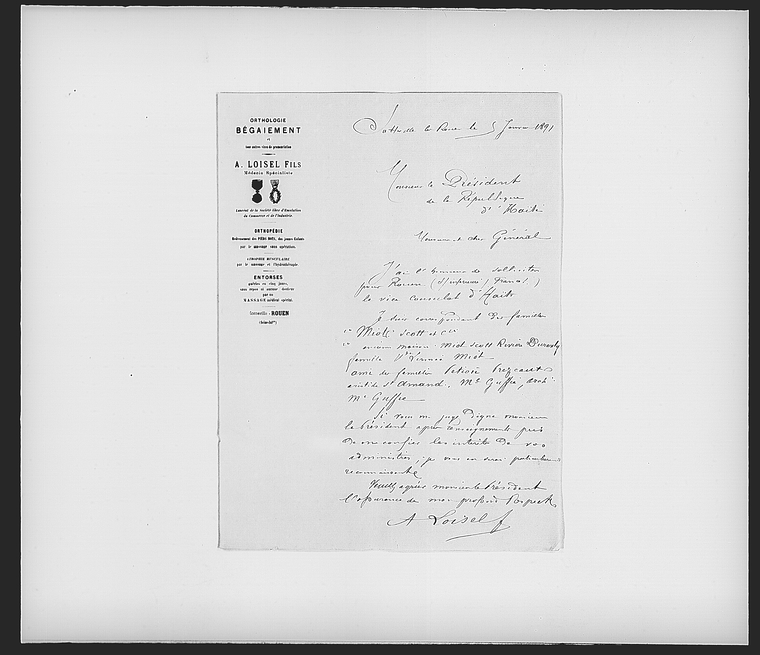 ORTHOLOGIE
BÉGAIEMENT
et
tous autres vices de prononciation
A. LOISEL FILS
Médecin Spécialiste
Lauréat de la Société libre d'Émulation
du Commerce et de l'Industrie.
ORTHOPÉDIE
Redressement des PIEDS BOTS, des jeunes Enfants
par le massage sans opération.
ATROPHIE MUSCULAIRE
par le massage et l'hydrothérapie
ENTORSES
guéries en cinq jours,
sans repos ni aucune douleur
par le
MASSAGE médical spécial.
ROUEN
le 5 Janvier 1891
Monsieur le Président
de la République
d'Haïti
Monsieur et cher Général
J'ai l'honneur de solliciter
pour Rouen (Sinferieure) (France)
le vice Consulat d'Haïti
Je suis correspondant des familles
Miot Scott et Cie
ancienne maison Miot Scott Rivière
famille Miot
ami des familles
St Amand, Mr Guffré,
Mr Guffré
Si vous me jugez Digne monsieur
le Président après renseignements pris
De me confier les intérêts De vos
administrés, je vous en serai
reconnaissant
Veuillez agréer monsieur le Président
l'assurance de mon profond Respect
A Loisel f